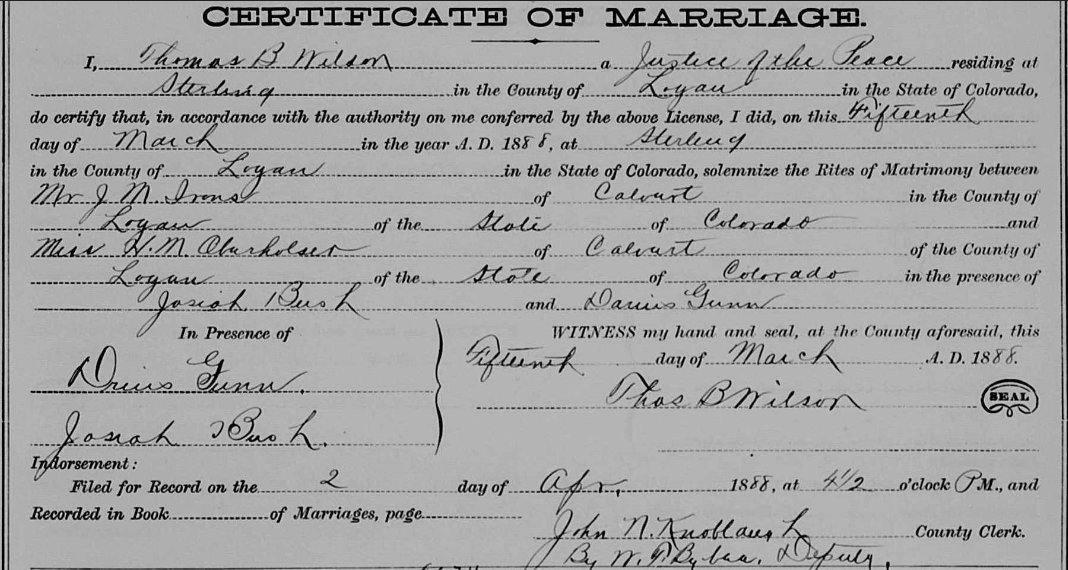 CERTIFICATE OF MARRIAGE.
I, Thomas B Wilson a Justice of the Peace residing at
Sterling in the County of Logan in the State of Colorado,
do certify that, in accordance with the authority on me conferred by the above License, I did, on this Fifteenth
day of March in the year A. D. 1888, at Sterling
in the County of Logan in the State of Colorado, solemnize the Rites of Matrimony between
Mr J. M. Irons of Calvert in the County of
Logan of the State of Colorado and
Miss H. M. Oberholser of Calvert of the County of
Logan of the State of Colorado in the presence of
Josiah Bush and Darius Gunn
In Presence of
WITNESS my hand and seal, at the County aforesaid, this
Fifteenth day of March A. D. 1888.
Drius Gunn.
Thos B Wilson
SEAL
Josiah Bush.
Indorsement:
Filed for Record on the 2 day of Apr. 1888, at 4 1/2 o'clock P M., and
Recorded in Book of Marriages, page
John N. Knoblauch County Clerk.
By W. Deputy.